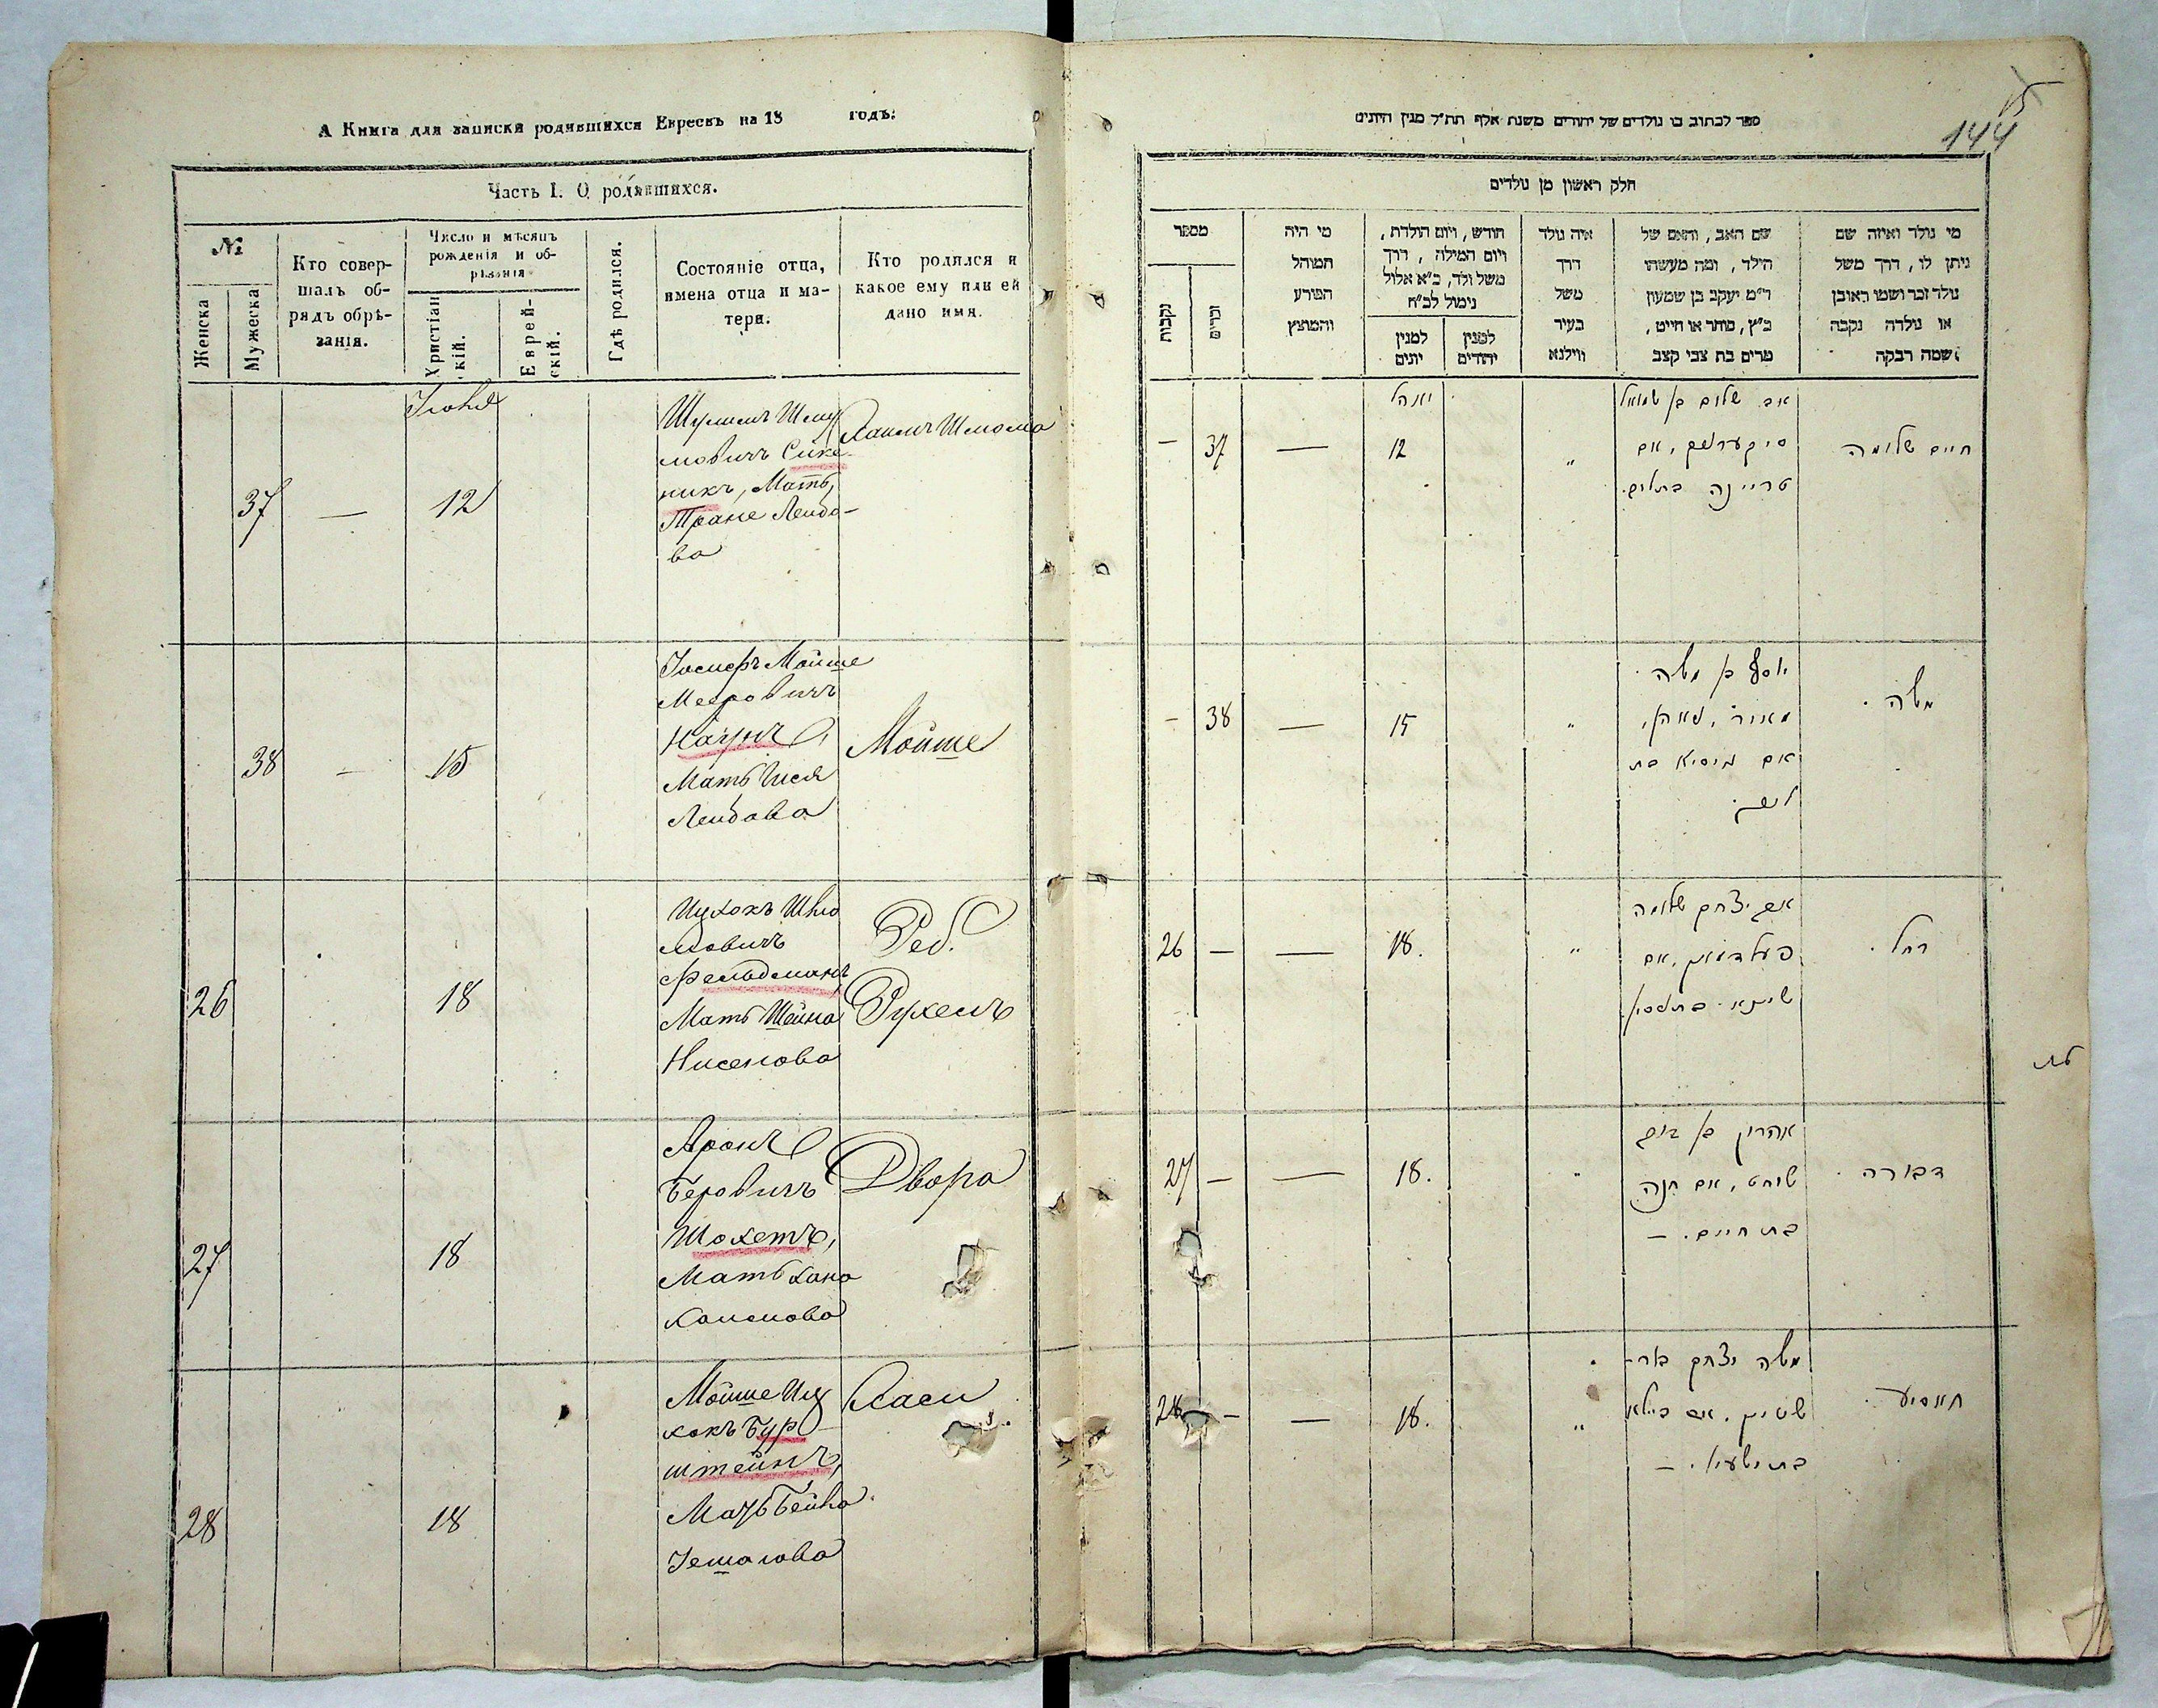 А Книга для записки родившихся Евреевъ на 18 годъ.
Часть I. О родившихся.
№
Женска
Мужеска
Кто совер-
шалъ об-
рядъ обрѣ-
занія.
Число и мѣсяцъ
рожденія и об-
рѣзанія
Христіан
скій.
Еврей-
скій.
Гдѣ родился.
Состояніе отца,
имена отца и ма-
тери.
Кто родился и
какое ему или ей
дано имя.
Іюня
37
—
12
Шулимъ Шму
мовичъ Сике
никъ, Мать,
Тране Лейбо-
ва
Хаимъ Шлома
38
—
15
Іосифъ Мойше
Мееровичъ
Мать
Лейбова
Мойше
26
18
Ицхокъ Шло
мовичъ
Фельдманъ,
Мать Шейна
Нисенова
Реб.
Рухель
27
18
Аронъ
Беровичъ
Шохетъ,
Мать Хана
Хаимова
Двора
28
18
Мойше Иц
хокъ Бур
штейнъ,
Мать Бейла
Хаси
ספר לכתוב בו נולדים של יהודים משנת אלף תת״ל מנין היונים
15
144
חלק ראשון מן נולדים
מספר
נקבות
זכרים
מי היה
המוהל
הפורע
והמוצץ
חודש, ויום הולדת,
ויום המילה, דרך
משל ולד, כ״א אלול
נימול לכ״ח
למנין
יונים
למנין
יהודים
איה נולד
דרך
משל
בעיר
ווילנא
שם האב, והאם של
הילד, ומה מעשהו
ר״מ יעקב בן שמעון
כ״ץ, סוחר או חייט,
מרים בת צבי קצב
מי נולד ואיזה שם
ניתן לו, דרך משל
נולד זכר ושמו ראובן
או נולדה נקבה
ושמה רבקה
— 37 — 12 "
אב שלום בן שמואל
אם
טריינה בת
חיים שלומה
— 38 — 15 "
יוסף בן משה
מאיר
אם בת
ליב.
משה.
26 — — 18. "
אב יצחק שלומה
פעלדמאן, אם
שיינא בת ניסן
רחל.
27 — — 18. "
אהרון בן בער
שוחט, אם חנה
בת חיים. —
דבורה.
28 — — 18. "
משה יצחק בור-
שטיין. אם ביילא
בת —
חאסיע.